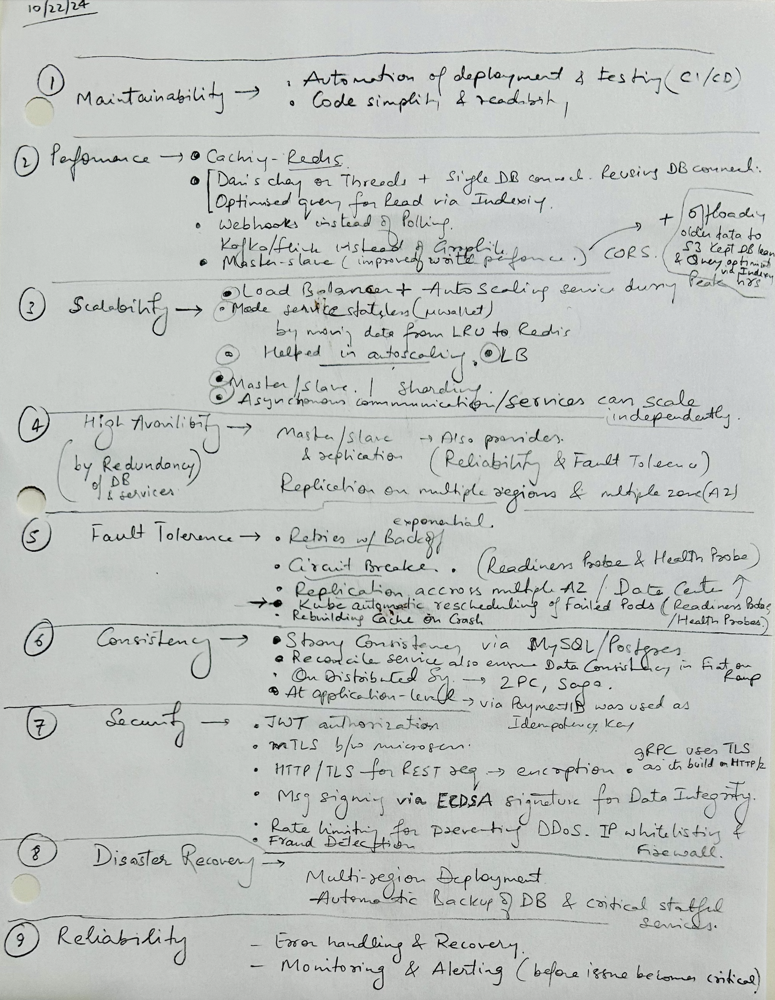 10/22/24
① Maintainability → • Automation of deployment & testing (CI/CD)
• Code simplity & readibility
② Performance → • Caching - Redis.
• [Dani's chay or Threads + Single DB connect. Reusing DB connect.
Optimised query for Read via Indexing.
• Webhooks instead of Polling.
Kafka/flink instead of Graphite
• Master-slave (improved write performance.) CORS.
+ offloading
older data to
S3 Kept DB lean
& Query optimist
via Indexing
③ Scalability → • Load Balancer + AutoScaling service during Peak hrs
• Made service statsless (μwallet)
by moving data from LRU to Redis
• Helped in autoscaling. • LB
• Master/Slave. / Sharding.
• Asynchonous communication/services can scale
independently.
④ High Availibity → Master/Slave → Also provides.
& replication (Reliability & Fault Tolerence)
(by Redundancy
of DB
& services)
Replication on multiple regions & multiple zone (AZ)
⑤ Fault Tolerence → • Retries w/ Backoff exponential.
• Circuit Breaker. • (Readiness Probe & Health Probe)
• Replication accross multiple AZ / Data Center ↑
→ • Kube automatic rescheduling of Failed Pods (Readiness Probes
• Rebuilding Cache on Crash /Health Probes)
⑥ Consistency → • Strong Consistency via MySQL/Postgres
• Reconcile service also ensure Data Consistency in Fiat on
Ramp
• On Distributed Sy. → 2PC, Saga.
• At application-level → via PaymentID was used as
Idempotency Key
⑦ Security → • JWT authorization
• mTLS b/w microserv.
• HTTP/TLS for REST req → encription • gRPC uses TLS
as its build on HTTP/2
• Msg signing via ECDSA signature for Data Integrity.
• Rate limiting for preventing DDoS. IP whitelisting &
Firewall.
• Fraud Detection
⑧ Disaster Recovery →
Multi-region Deployment
Automatic Backup of DB & critical statful
services.
⑨ Reliability – Error handling & Recovery.
– Monitoring & Alerting (before issue becomes critical)